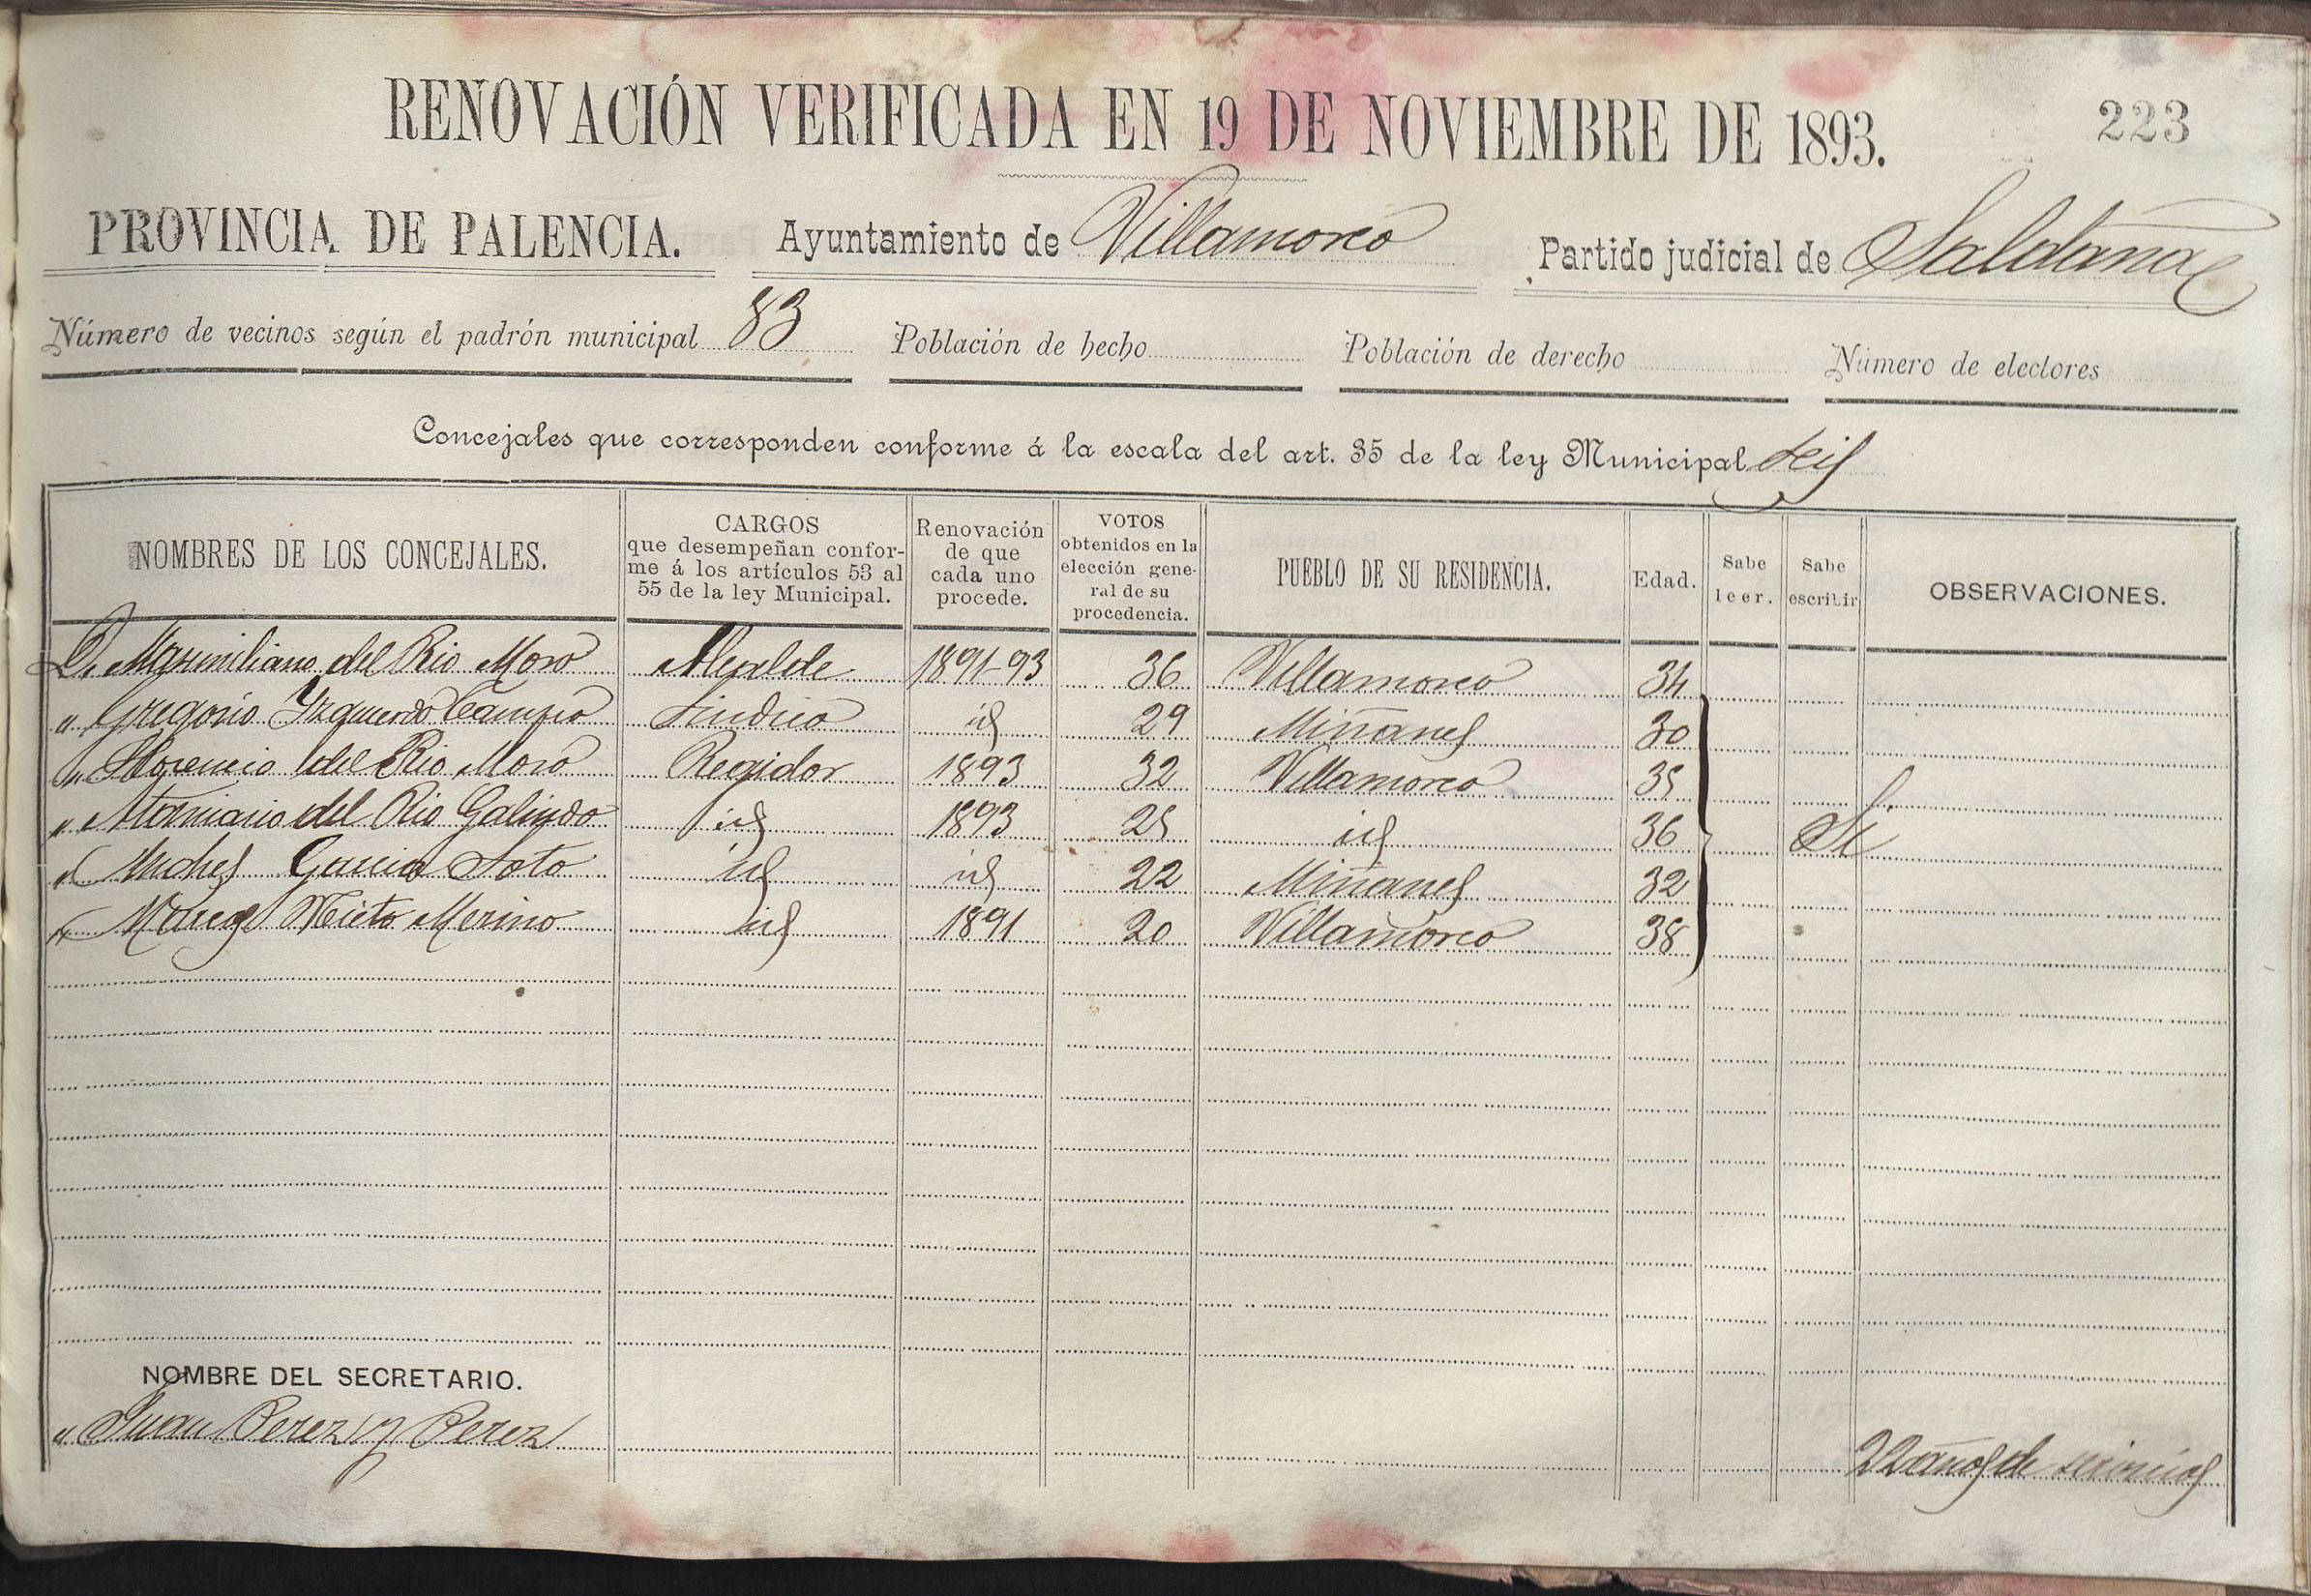 RENOVACIÓN VERIFICADA EN 19 DE NOVIEMBRE DE 1893.
223
PROVINCIA DE PALENCIA. Ayuntamiento de Villamorco Partido judicial de Saldaña
Número de vecinos según el padrón municipal 83 Población de hecho Población de derecho Número de electores
Concejales que corresponden conforme á la escala del art. 35 de la ley Municipal seis
NOMBRES DE LOS CONCEJALES. CARGOS que desempeñan conforme á los artículos 53 al 55 de la ley Municipal. Renovación de que cada uno procede. VOTOS obtenidos en la elección general de su procedencia. PUEBLO DE SU RESIDENCIA. Edad. Sabe leer. Sabe escribir OBSERVACIONES.
D. Maximiliano del Rio Moro Alcalde 1891-93 36 Villamorco 34
" Gregorio Yzquierdo Campo Sindico id 29 Miñanes 30
" Florencio del Rio Moro Regidor 1893 32 Villamorco 35
" del Rio Galindo id 1893 25 id 36 Si
" Garcia Soto id id 22 Miñanes 32
" Marcos Nieto Merino id 1891 20 Villamorco 38
NOMBRE DEL SECRETARIO.
" Juan Perez y Perez 22 años de servicios